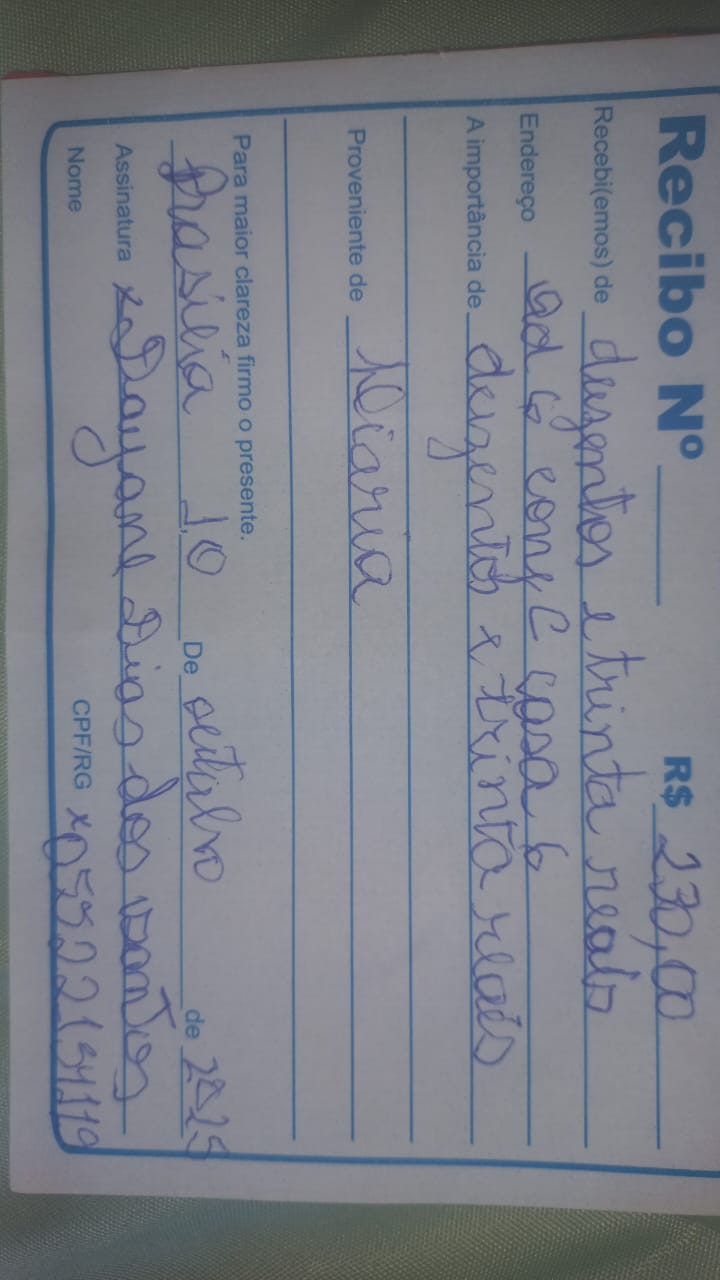 Recibo Nº R$ 230,00
Recebi(emos) de duzentos e trinta reais
Endereço Qd 6 conj C casa 6
A importância de duzentos e trinta reais
Proveniente de Diaria
Para maior clareza firmo o presente.
Brasilia 10 De outubro de 2025
Assinatura x Dayane Dias dos santos
Nome CPF/RG x